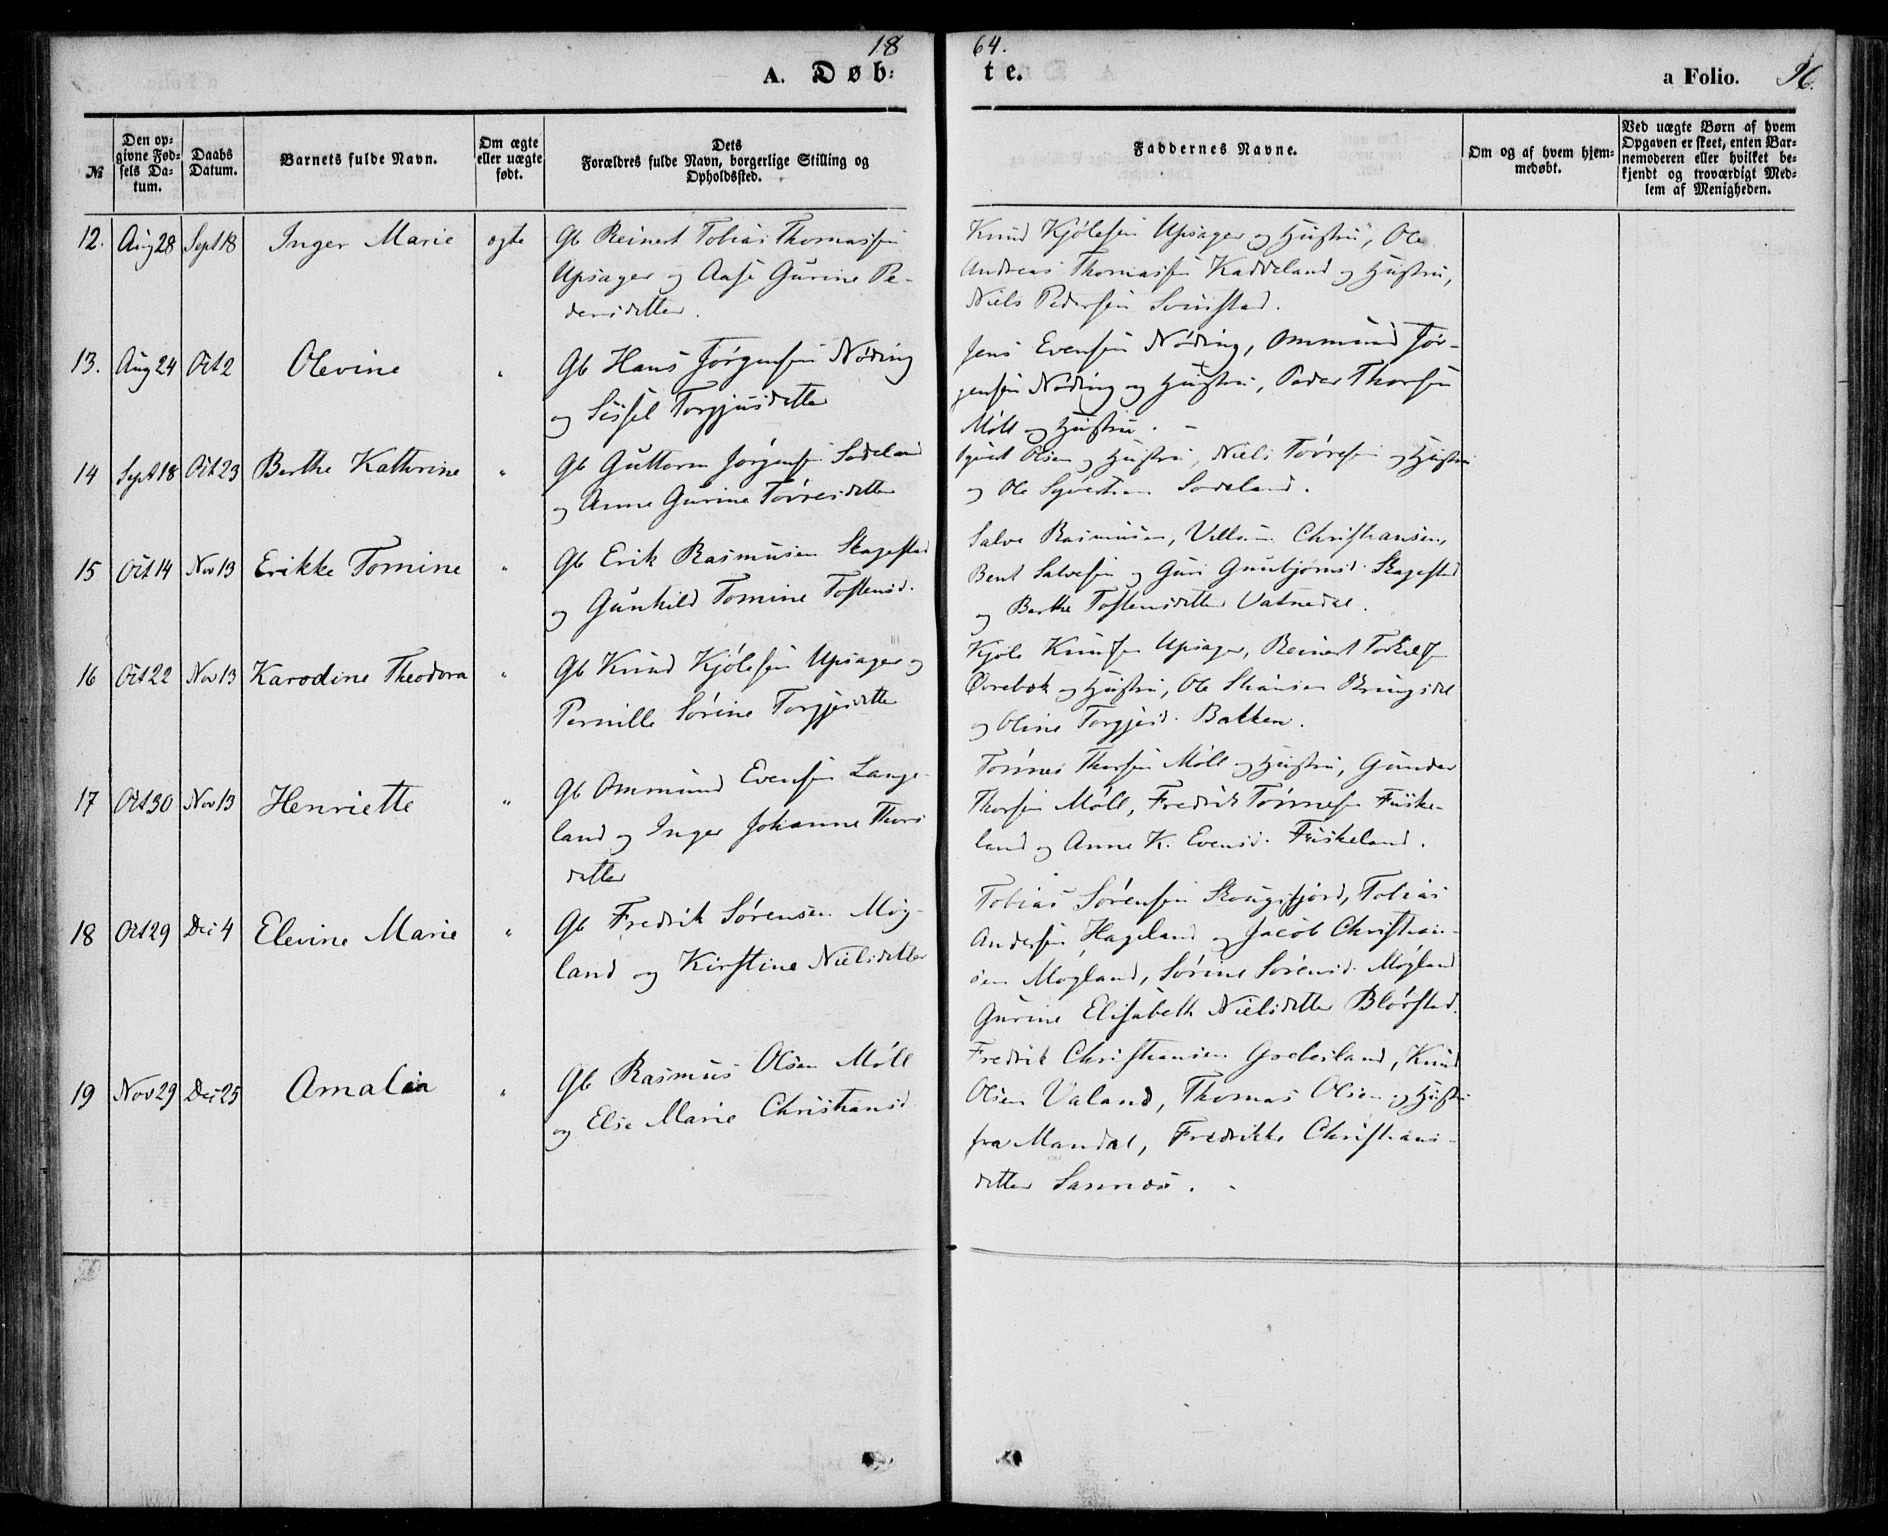 18
64.
A. Døb:
te.
a Folio.
96.
№
Den op-
givne Fød-
sels Da-
tum.
Daabs
Datum.
Barnets fulde Navn.
Om ægte
eller uægte
født.
Dets
Forældres fulde Navn, borgerlige Stilling og
Opholdssted.
Faddernes Navne.
Om og af hvem hjem-
medøbt.
Ved uægte Børn af hvem
Opgaven er skeet, enten Bar-
nemoderen eller hvilket be-
kjendt og troværdigt Med-
lem af Menigheden.
12. Aug 28 Sept 18 Inger Marie ægte Gb Reinert Tobias Thomassen
Upsager og Aase Gurine Pe-
dersdatter.
Knud Kjølesen Upsager og Hustru, Ole
Andreas Thomassen Kaddeland og Hustru,
Niels Pedersen
13. Aug 24 Oct 2 Olevine " Gb Hans Jørgensen Nøding
og Sissel Torgjusdatter
Jens Evensen Nøding, Ommund Jør-
gensen Nøding og Hustru, Peder Thorsen
Møll og Hustru.
14 Sept 18 Oct 23 Berthe Kathrine " Gb Guttorm Jørgensen Sodeland
og Anne Gurine Tørresdatter
Olsen og Hustru, Niels Tørresen og Hustru
og Ole Sodeland.
15 Oct 14 Nov 13 Erikke Tomine " Gb Erik Rasmusen Skagestad
og Gunhild Tomine Tostensd.
Salve Rasmusen, Christiansen,
Bent Salvesen og Guri Gunbjørnsd. Skagestad
og Berthe Tostensdatter Vatnedal.
16 Oct 22 Nov 13 Karodine Theodora " Gb Knud Kjølesen Upsager og
Pernille Sørine Torgjusdatter
Kjøle Knudsen Upsager, Reinert
Øvrebøk og Hustru, Ole
og Oline Torgjusd. Bakken.
17 Oct 30 Nov 13 Henriette " Gb Ommund Evensen Lange-
land og Inger Johanne Thors
datter
Tønnes Thorsen Møll og Hustru, Gunder
Thorsen Møll, Fredrik Tønnesen Fuske-
land og Anne K. Evensd. Fuskeland.
18 Oct 29 Dec 4 Elevine Marie " Gb Fredrik Sørensen Møg-
land og Kirstine Nielsdatter
Tobias Sørensen Skougsfjord, Tobias
Andersen Hageland og Jacob Christian-
sen Møgland, Sørine Sørensd. Møgland
Gurine Elisabeth Nielsdatter
19 Nov 29 Dec 25 Amalia " Gb Rasmus Olsen Møll
og Else Marie Christiansd
Fredrik Christiansen Knud
Olsen Valand, Thomas Olsen og Hustru
fra Mandal, Fredrikke Christians-
datter Sannæs.